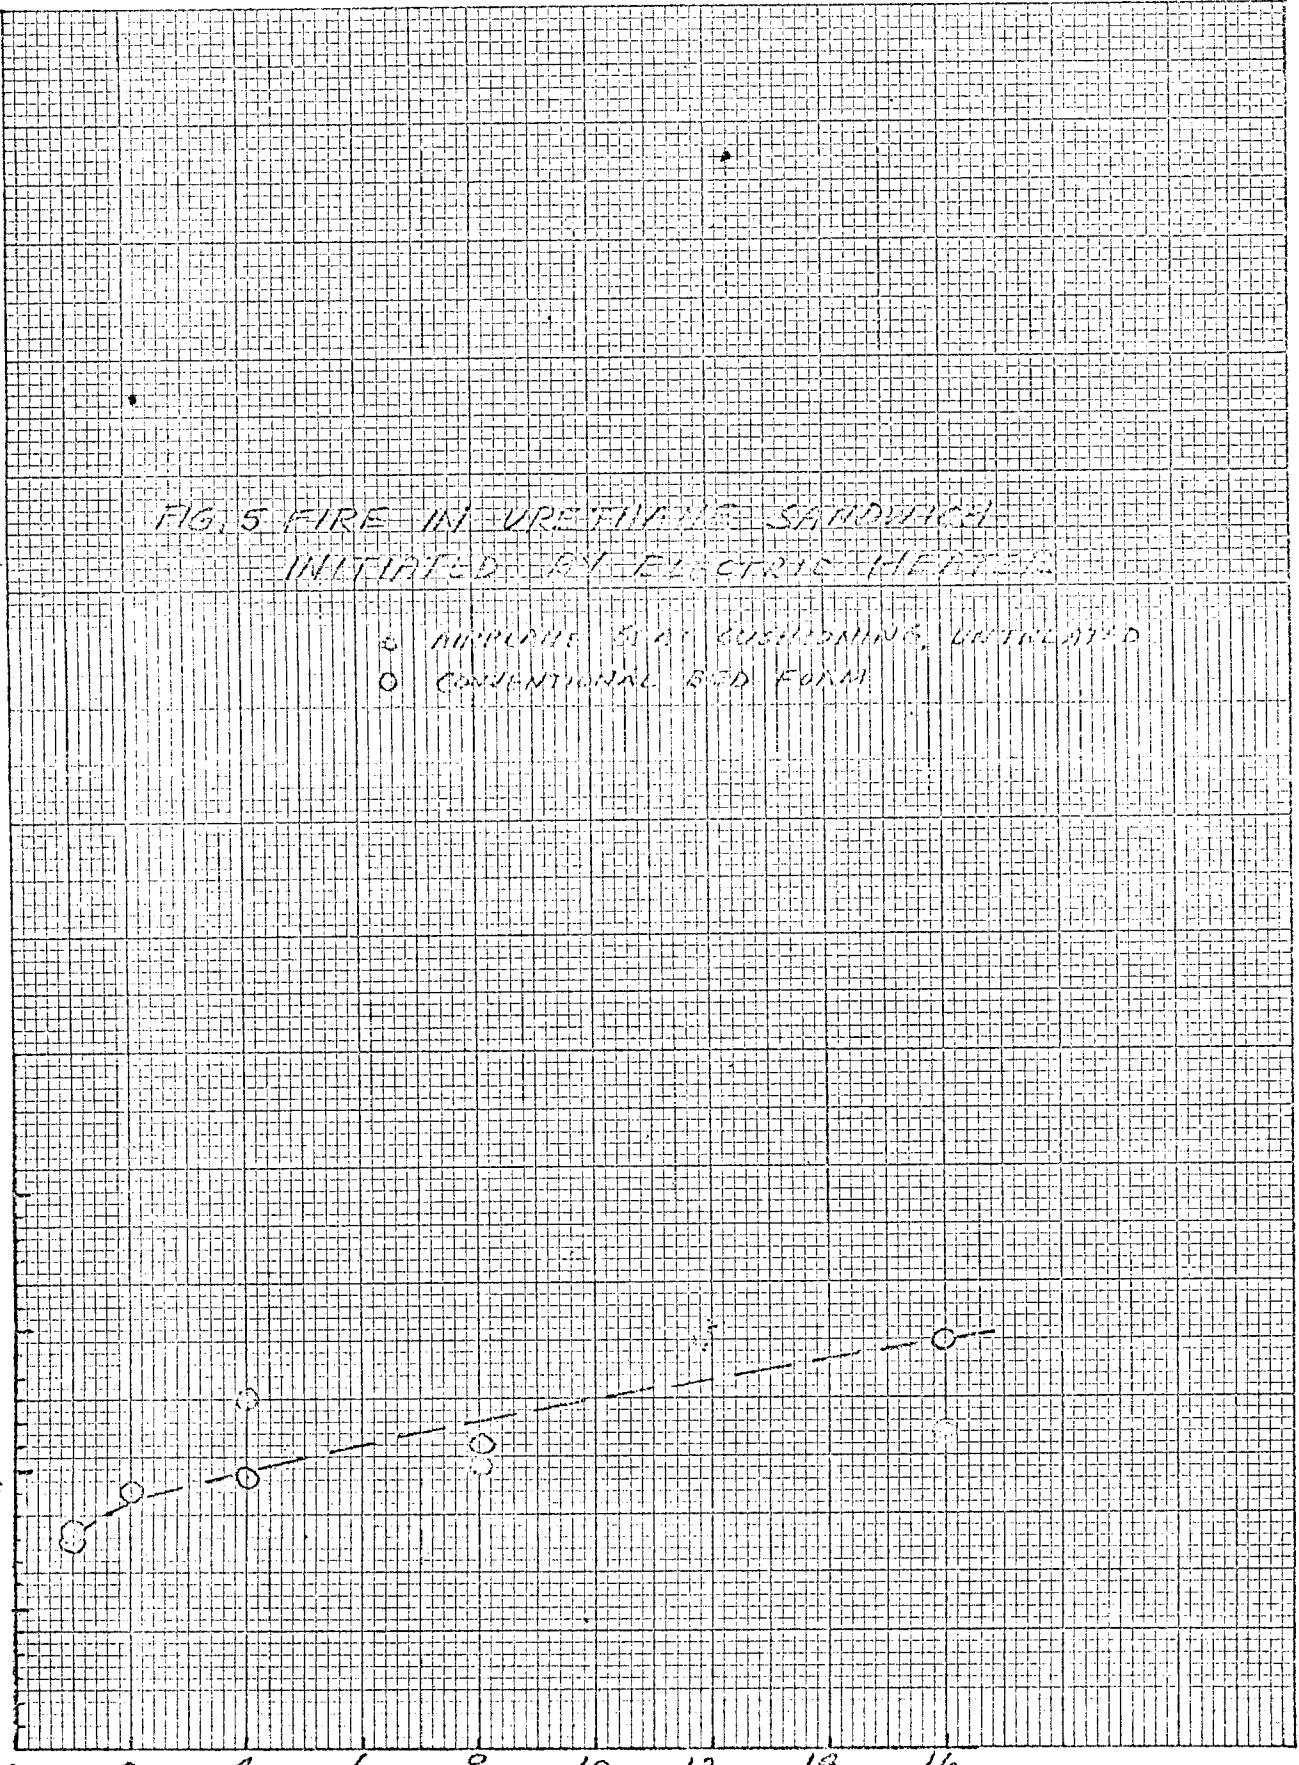 FIG. 5 FIRE IN URETHANE SANDWICH
INITIATED BY ELECTRIC HEATER
AIRPLANE SEAT CUSHIONING, UNTREATED
CONVENTIONAL BED FOAM
2 4 6 8 10 12 16